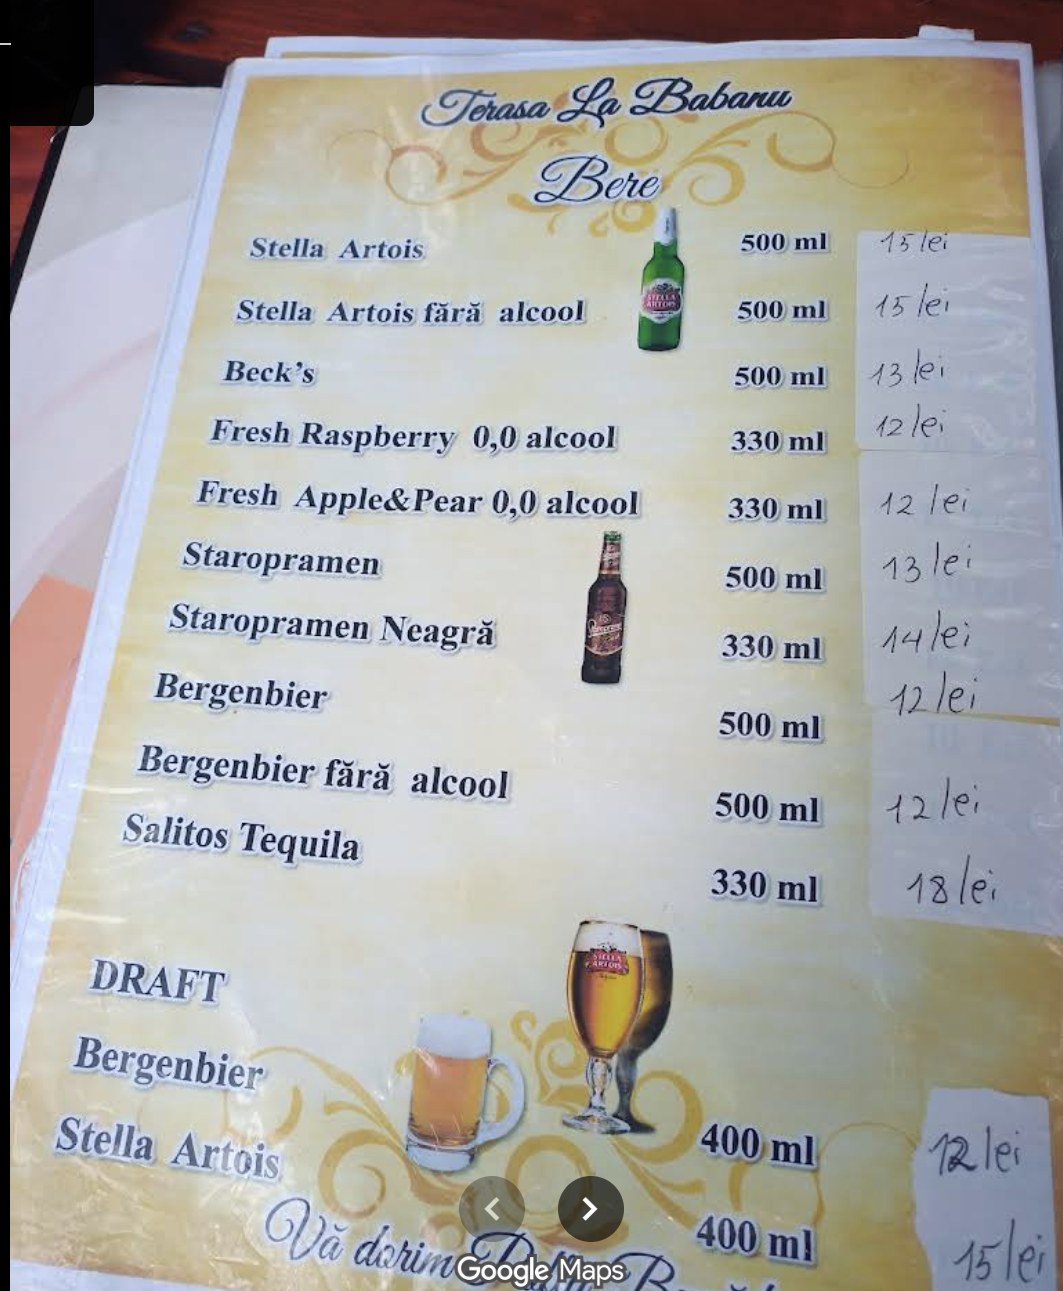 Terasa La Babanu
Bere
Stella Artois 500 ml 15 lei
Stella Artois fără alcool 500 ml 15 lei
Beck's 500 ml 13 lei
Fresh Raspberry 0,0 alcool 330 ml 12 lei
Fresh Apple&Pear 0,0 alcool 330 ml 12 lei
Staropramen 500 ml 13 lei
Staropramen Neagră 330 ml 14 lei
Bergenbier 500 ml 12 lei
Bergenbier fără alcool 500 ml 12 lei
Salitos Tequila 330 ml 18 lei
STELLA ARTOIS
DRAFT
Bergenbier 400 ml 12 lei
Stella Artois 400 ml 15 lei
Vă dorim
Google Maps